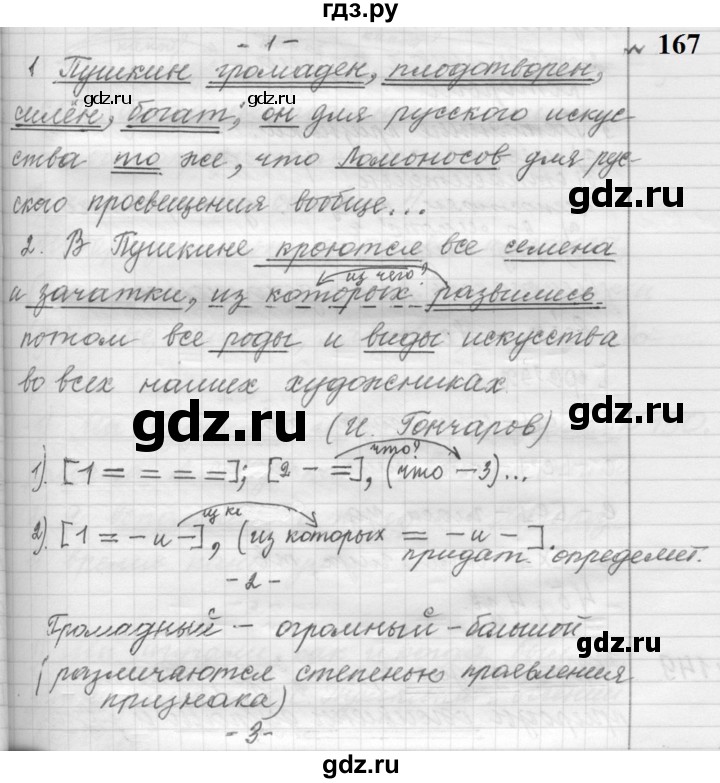 гдз.ру
- 1 -
167
1 Пушкин громаден, плодотворен,
силён, богат; он для русского искус-
ства то же, что Ломоносов для рус-
ского просвещения вообще...
2. В Пушкине кроются все семена
из чего?
и зачатки, из которых развились
потом все роды и виды искусства
во всех наших художниках
(И. Гончаров)
что?
1). [1 = = = =]; [2 - =], (что - 3)...
2). [1 = - и -], (из которых = - и - ].
придат. определит.
- 2 -
Громадный - огромный - большой
(различаются степенью проявления
признака)
- 3 -
gdz.ru
gdz.ru
gdz.ru
gdz.ru
gdz.ru
gdz.ru
gdz.ru
gdz.ru